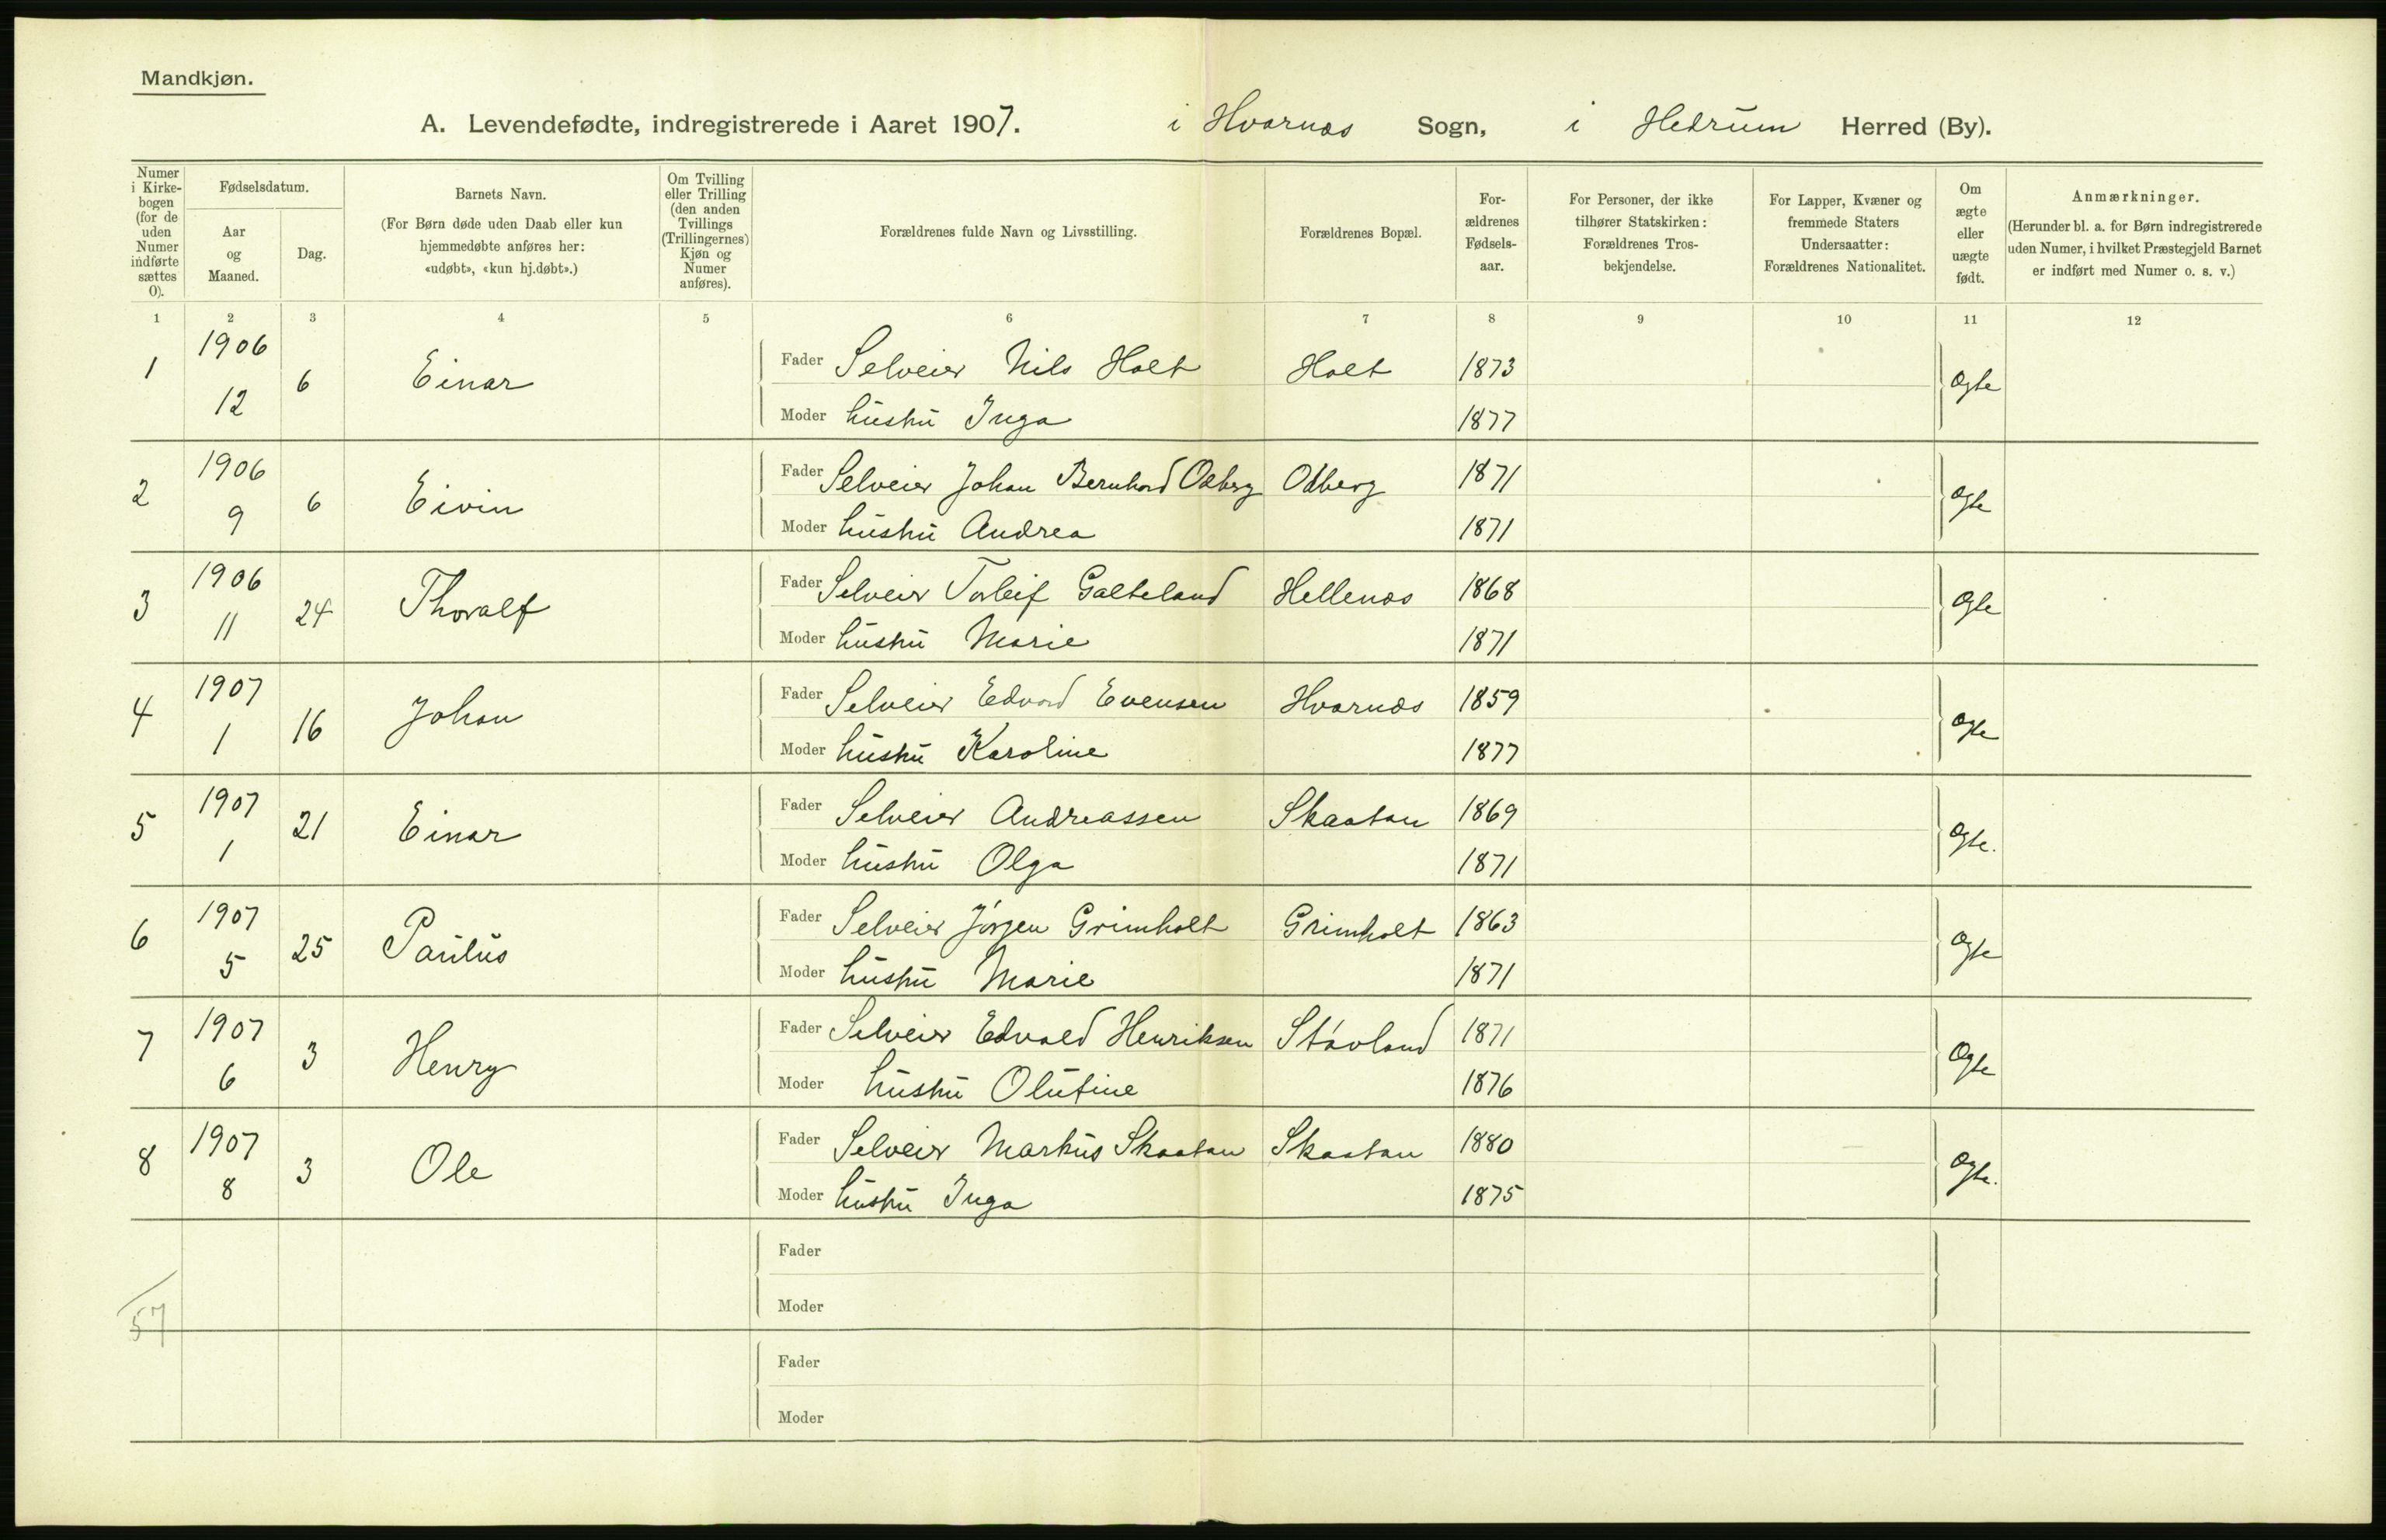 Mandkjøn.
A. Levendefødte, indregistrerede i Aaret 1907. i Hvarnæs Sogn, i Hedrum Herred (By).
Numer i Kirkebogen (for de uden Numer indførte sættes 0).
Fødselsdatum.
Aar og Maaned.
Dag.
Barnets Navn.
(For Børn døde uden Daab eller kun hjemmedøbte anføres her: «udøbt», «kun hj.døbt».)
Om Tvilling eller Trilling (den anden Tvillings (Trillingernes) Kjøn og Numer anføres).
Forældrenes fulde Navn og Livsstilling.
Forældrenes Bopæl.
Forældrenes Fødselsaar.
For Personer, der ikke tilhører Statskirken: Forældrenes Trosbekjendelse.
For Lapper, Kvæner og fremmede Staters Undersaatter: Forældrenes Nationalitet.
Om ægte eller uægte født.
Anmærkninger.
(Herunder bl. a. for Børn indregistrerede uden Numer, i hvilket Præstegjeld Barnet er indført med Numer o. s. v.)
1 2 3 4 5 6 7 8 9 10 11 12
1 1906 12 6 Einar Fader Selveier Nils Holt Holt 1873 Ægte
Moder hustru Inga 1877
2 1906 9 6 Eivin Fader Selveier Johan Bernhard Odberg Odberg 1871 Ægte
Moder hustru Andrea 1871
3 1906 11 24 Thoralf Fader Selveier Torleif Galteland Hellenæs 1868 Ægte
Moder hustru Marie 1871
4 1907 1 16 Johan Fader Selveier Edvard Evensen Hvarnæs 1859 Ægte
Moder hustru Karoline 1877
5 1907 1 21 Einar Fader Selveier Andreassen Skaatan 1869 Ægte.
Moder hustru Olga 1871
6 1907 5 25 Paulus Fader Selveier Jørgen Grimholt Grimholt 1863 Ægte
Moder hustru Marie 1871
7 1907 6 3 Henry Fader Selveier Edvald Henriksen Støvland 1871 Ægte
Moder hustru Olufine 1876
8 1907 8 3 Ole Fader Selveier Markus Skaatan Skaatan 1880 Ægte.
Moder hustru Inga 1875
Fader
Moder
57
Fader
Moder